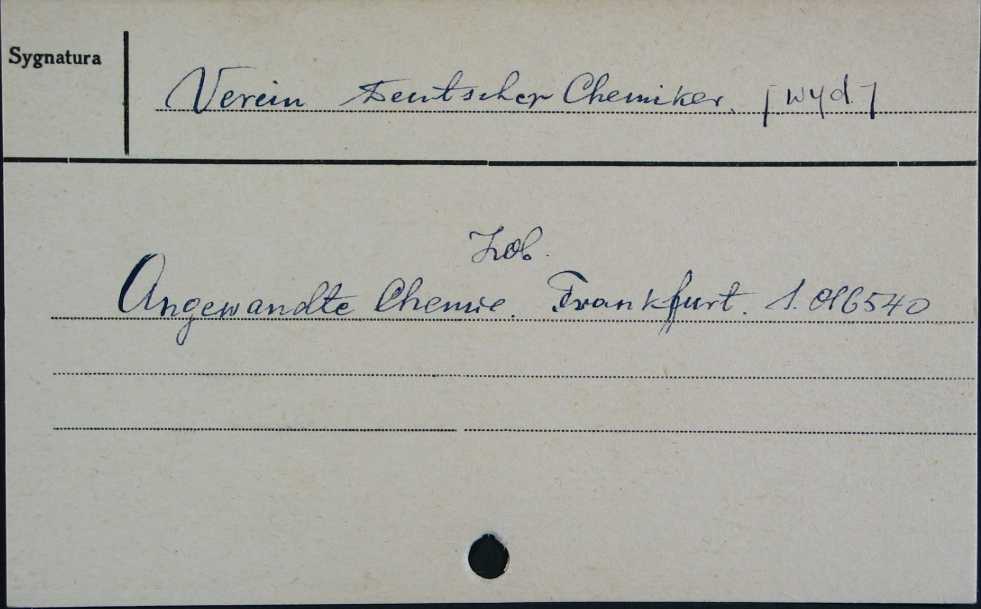 Sygnatura
Verein Deutscher Chemiker. [wyd.]
Zob.
Angewandte Chemie. Frankfurt.